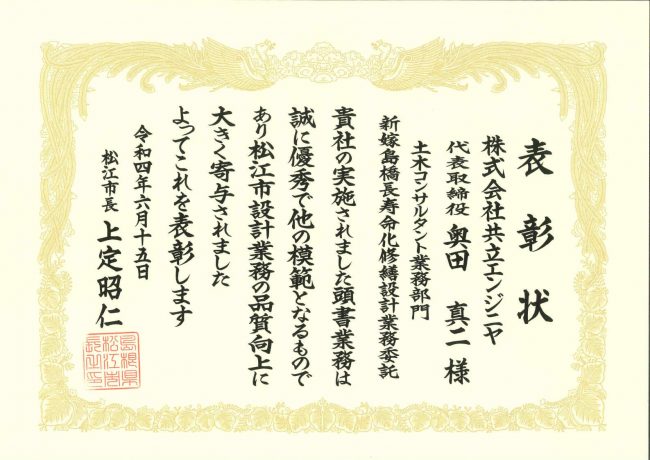 表彰状
株式会社共立エンジニヤ
代表取締役 奥田 真二 様
土木コンサルタント業務部門
新嫁島橋長寿命化修繕設計業務委託
貴社の実施されました頭書業務は
誠に優秀で他の模範となるもので
あり松江市設計業務の品質向上に
大きく寄与されました
よってこれを表彰します
令和四年六月十五日
松江市長 上定昭仁
島根県
松江市
長之印